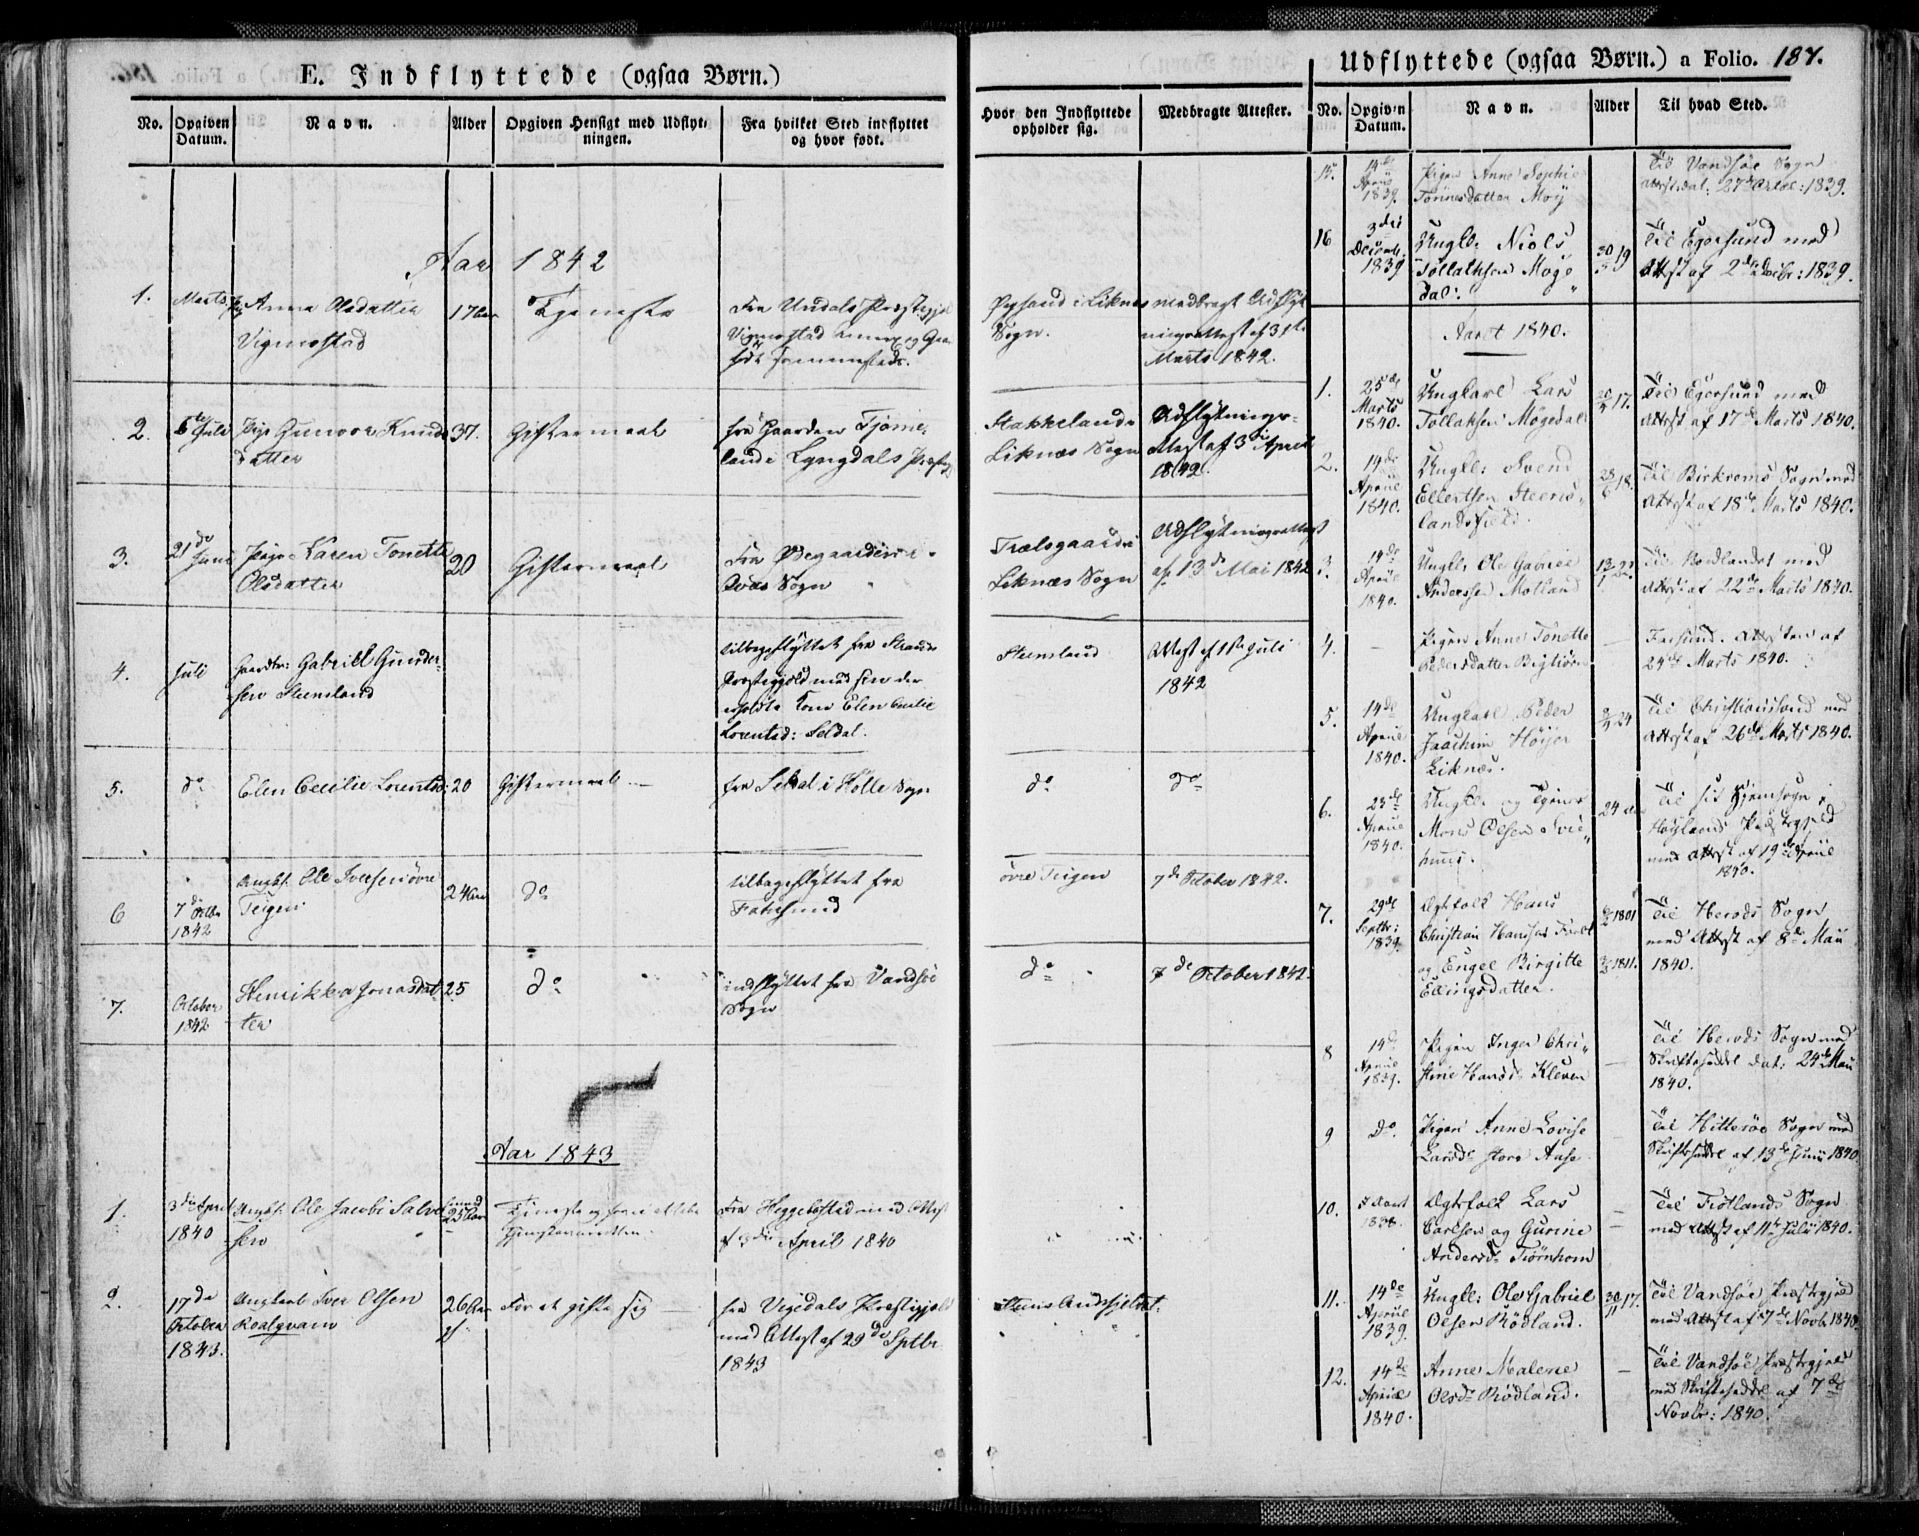 E. Indflyttede (ogsaa Børn.)
No.
Opgiven Datum.
Navn.
Alder
Opgiven Hensigt med Udflyt-
ningen.
Fra hvilket Sted indflyttet
og hvor født.
Hvor den Indflyttede
opholder sig.
Medbragte Attester.
Aar 1842
1.
Marts
Anna Olsdatter
Vigmostad
17 Aar
Tjeneste
Fra Undals Præstegjel
Vigmostad Annex og Gaar
født sammesteds.
i Liknes
Sogn.
medbragt Udflyt
ningsattest af 31te
Marts 1842.
2.
5te Juli
Pige Gunvor Knuds
datter
37.
Giftermaal
fra Gaarden
Lyngdals Præstegj
Stakkeland i
Liknæs Sogn
Udflytnings-
Attest af 3die April
1842.
3.
21de
Juni
Pige Karen Tonette
Olsdatter
20
Giftermaal
Fra Ødegaarden i
Qvås Sogn
Trælsgaard i
Liknæs Sogn
Udflytningsattest
af 13de Mai 1842
4.
Juli
Gaardbr: Gabriel Gunder-
sen Steensland
tilbageflyttet fra Strands
Præstegjeld med sin der
Kone Elen Cecilie
Lorentsd: Seldal.
Steensland
Attest af 1ste Juli
1842
5.
do
Elen Cecilie Lorentsd:
20
Giftermaal
fra Seldal i Holle Sogn
do
do
6
7de Octbr
1842
Ungk. Ole Iversen øvre
Teigen
24 Aar
do
tilbageflyttet fra
Farsund
øvre Teigen
7de October 1842.
7.
October
1842
Henrikka Jonasdat-
ter
25
do
indflyttet fra Vandsøe
Sogn
do
7de October 1842.
Aar 1843
1.
3die April
1840
Ungk. Ole Jacobi Salve
sen
25 Aar
Tjeneste
Fra Heggebostad med Attest
April 1840
2.
17de
October
1843.
Ungkarl Iver Olsen
Roalqvam
26 Aar
For at gifte sig
fra Vegedals Præstegjel
med Attest af 29de Septbr
1843
Udflyttede (ogsaa Børn.) a Folio. 187.
No.
Opgiven
Datum.
Navn.
Alder
Til hvad Sted.
15.
14de
April
1839.
Pigen Anne Sophie
Tønnesdatter Moy
Til Vandsøe Sogn
Attest dat: 27de Octbr: 1839.
16
3die
Decemb.
1839
Ungk: Niels
Tollaksen Møge
dal.
30/5 19
Til Egersund med
Attest af 2den Decbr: 1839.
Aaret 1840.
1.
25de
Marts
1840.
Ungkarl Lars
Tollaksen Møgedal
17.
Til Egersund med
Attest af 17de Marts 1840.
2.
14de
April
1840.
Ungk: Svend
Ellertsen Steens-
landsfield.
18.
Til Birkrems Sogn med
Attest af 18de Marts 1840.
3.
14de
April
1840.
Ungk: Ole Gabriel
Anderssen Motland
Til Nordlandet med
Attest af 22de Marts 1840.
4.
—
Pigen Anne Tonette
Pedersdatter
—
Farsund. Attesten af
24de Marts 1840.
5.
14de
April
1840.
Ungkarl Peder
Joachim Høyer
Liknæs.
24
Til Christianssand med
Attest af 26de Marts 1840.
6.
23de
April
1840.
Ungk. og Tjener
Mons Olsen Svie-
huus.
24 Aar
Til sit Hjemsogn i
Høylands Præstegjeld
med Attest af 19de April
1840.
7.
29de
Septbr:
1839.
Ægtefolk Hans
Christian Hansen
og Engel Birgitte
Ellingsdatter.
1801
1811.
Til Herads Sogn
med Attest af 8de Mai
1840.
8
14de
April
1839.
Pigen Inger Chri-
stine Hansd: Kleven
—
Til Herads Sogn med
Skriftesedel dat: 24de Mai
1840.
9
Do.
Pigen Anne Lovise
Larsd: store Aase
—
Til Hitterøe Sogn med
Skriftesedel af 13de Juni 1840
10.
1838.
Ægtefolk Lars
Carlsen og Gurine
Andersd: Tjørnhom
—
—
Til Fjotlands Sogn
med Attest af 11te Julii 1840.
11.
14de
April
1839.
Ungk: Ole Gabriel
Olsen Rødland.
30/11 17.
Til Vandsøe Præstegjeld
med Attest af 7de Novb. 1840.
12.
14de
April
1840.
Anne Malene
Olsd: Rødland.
—
Til Vandsøe Præstegjeld
med Skriftesedel af 7de
Novbr: 1840.